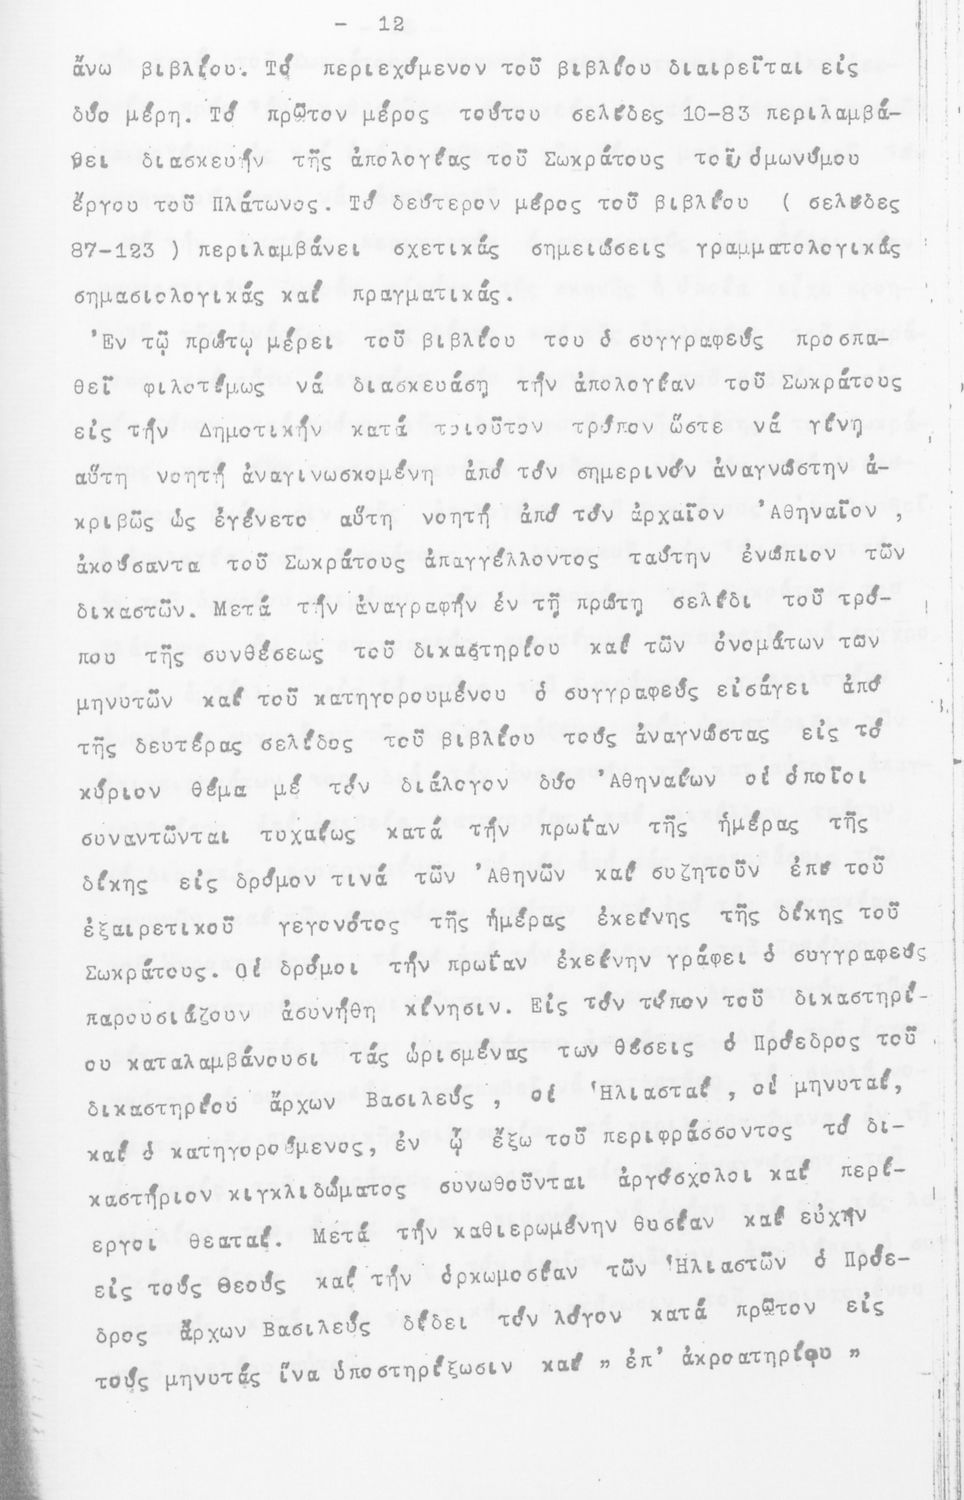 - 12
ἄνω βιβλίου. Τό περιεχόμενον τοῦ βιβλίου διαιρεῖται εἰς
δύο μέρη. Τό πρῶτον μέρος τούτου σελίδες 10-83 περιλαμβά-
νει διασκευήν τῆς ἀπολογίας τοῦ Σωκράτους τοῦ ὁμωνύμου
ἔργου τοῦ Πλάτωνος. Τό δεύτερον μέρος τοῦ βιβλίου ( σελίδες
87-123 ) περιλαμβάνει σχετικάς σημειώσεις γραμματολογικάς
σημασιολογικάς καί πραγματικάς.
Ἐν τῷ πρώτῳ μέρει τοῦ βιβλίου του ὁ συγγραφεύς προσπα-
θεῖ φιλοτίμως νά διασκευάσῃ τήν ἀπολογίαν τοῦ Σωκράτους
εἰς τήν Δημοτικήν κατά τοιοῦτον τρόπον ὥστε νά γίνῃ
αὕτη νοητή ἀναγινωσκομένη ἀπό τόν σημερινόν ἀναγνώστην ἀ-
κριβῶς ὡς ἐγένετο αὕτη νοητή ἀπό τόν ἀρχαῖον Ἀθηναῖον ,
ἀκούσαντα τοῦ Σωκράτους ἀπαγγέλλοντος ταύτην ἐνώπιον τῶν
δικαστῶν. Μετά τήν ἀναγραφήν ἐν τῇ πρώτῃ σελίδι τοῦ τρό-
που τῆς συνθέσεως τοῦ δικαστηρίου καί τῶν ὀνομάτων τῶν
μηνυτῶν καί τοῦ κατηγορουμένου ὁ συγγραφεύς εἰσάγει ἀπό
τῆς δευτέρας σελίδος τοῦ βιβλίου τούς ἀναγνώστας εἰς τό
κύριον θέμα μέ τόν διάλογον δύο Ἀθηναίων οἱ ὁποῖοι
συναντῶνται τυχαίως κατά τήν πρωΐαν τῆς ἡμέρας τῆς
δίκης εἰς δρόμον τινά τῶν Ἀθηνῶν καί συζητοῦν ἐπί τοῦ
ἐξαιρετικοῦ γεγονότος τῆς ἡμέρας ἐκείνης τῆς δίκης τοῦ
Σωκράτους. Οἱ δρόμοι τήν πρωΐαν ἐκείνην γράφει ὁ συγγραφεύς
παρουσιάζουν ἀσυνήθη κίνησιν. Εἰς τόν τόπον τοῦ δικαστηρί-
ου καταλαμβάνουσι τάς ὡρισμένας των θέσεις ὁ Πρόεδρος τοῦ
δικαστηρίου ἄρχων Βασιλεύς , οἱ Ἡλιασταί , οἱ μηνυταί,
καί ὁ κατηγορούμενος, ἐν ᾧ ἔξω τοῦ περιφράσσοντος τό δι-
καστήριον κιγκλιδώματος συνωθοῦνται ἀργόσχολοι καί περί-
εργοι θεαταί. Μετά τήν καθιερωμένην θυσίαν καί εὐχήν
εἰς τούς Θεούς καί τήν ὁρκωμοσίαν τῶν Ἡλιαστῶν ὁ Πρόε-
δρος ἄρχων Βασιλεύς δίδει τόν λόγον κατά πρῶτον εἰς
τούς μηνυτάς ἵνα ὑποστηρίξωσιν καί " ἐπ' ἀκροατηρίου "